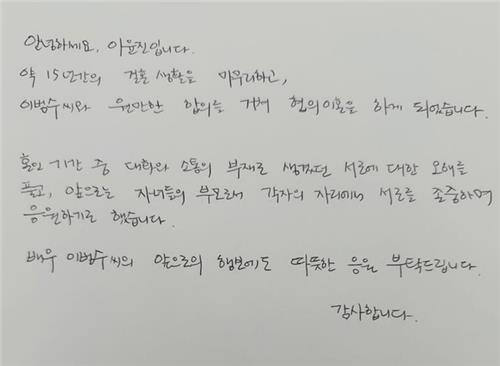 안녕하세요, 이윤진입니다.
약 15년간의 결혼 생활을 마무리하고,
이범수씨와 원만한 합의를 거쳐 협의이혼을 하게 되었습니다.
혼인 기간 중 대화와 소통의 부재로 생겼던 서로에 대한 오해를
풀고, 앞으로는 자녀들의 부모로서 각자의 자리에서 서로를 존중하며
응원하기로 했습니다.
배우 이범수씨의 앞으로의 행보에도 따뜻한 응원 부탁드립니다.
감사합니다.